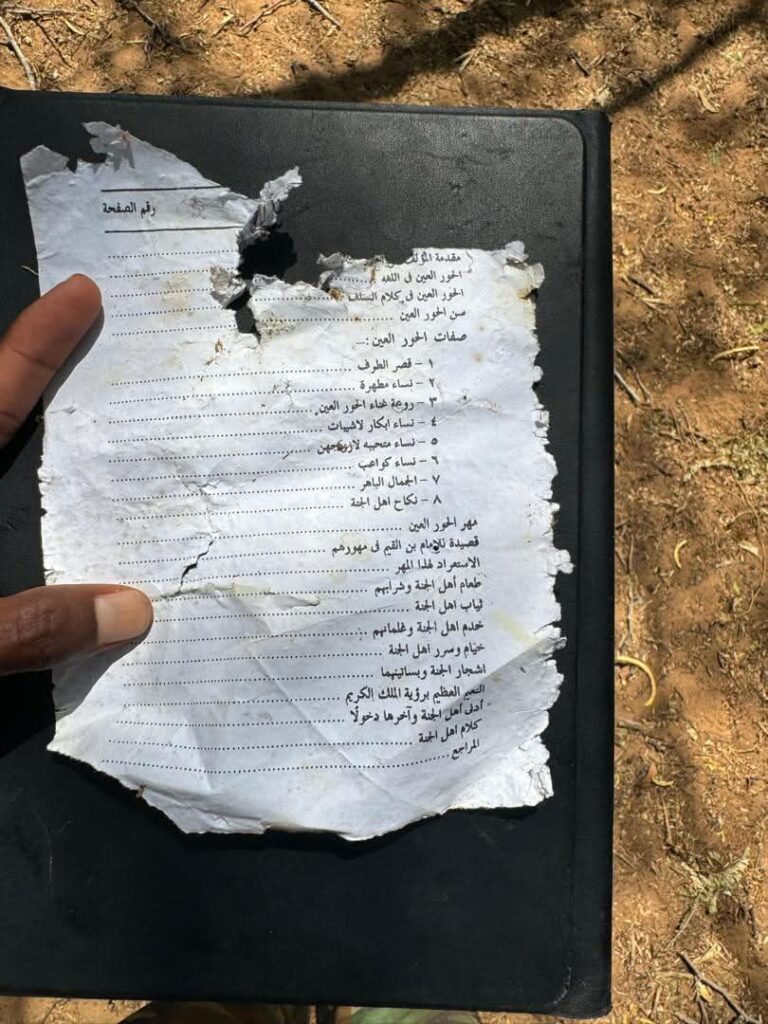 رقم الصفحة
مقدمة المؤلف
الحور العين فى اللغه
الحور العين فى كلام السلف
سن الحور العين
صفات الحور العين :ــ
١ – قصر الطرف
٢ – نساء مطهرة
٣ – روعة غناء الحور العين
٤ – نساء ابكار لاشيبات
٥ – نساء متحببه لازواجهن
٦ – نساء كواعب
٧ – الجمال الباهر
٨ – نكاح اهل الجنة
مهر الحور العين
قصيدة للإمام بن القيم فى مهورهم
الاستعراد لهذا المهر
طعام أهل الجنة وشرابهم
ثياب اهل الجنة
خدم اهل الجنة وغلمانهم
خيام وسرر اهل الجنة
اشجار الجنة وبساتينهما
النعيم العظيم برؤية الملك الكريم
- أدنى أهل الجنة وآخرها دخولًا
كلام اهل الجنة
المراجع